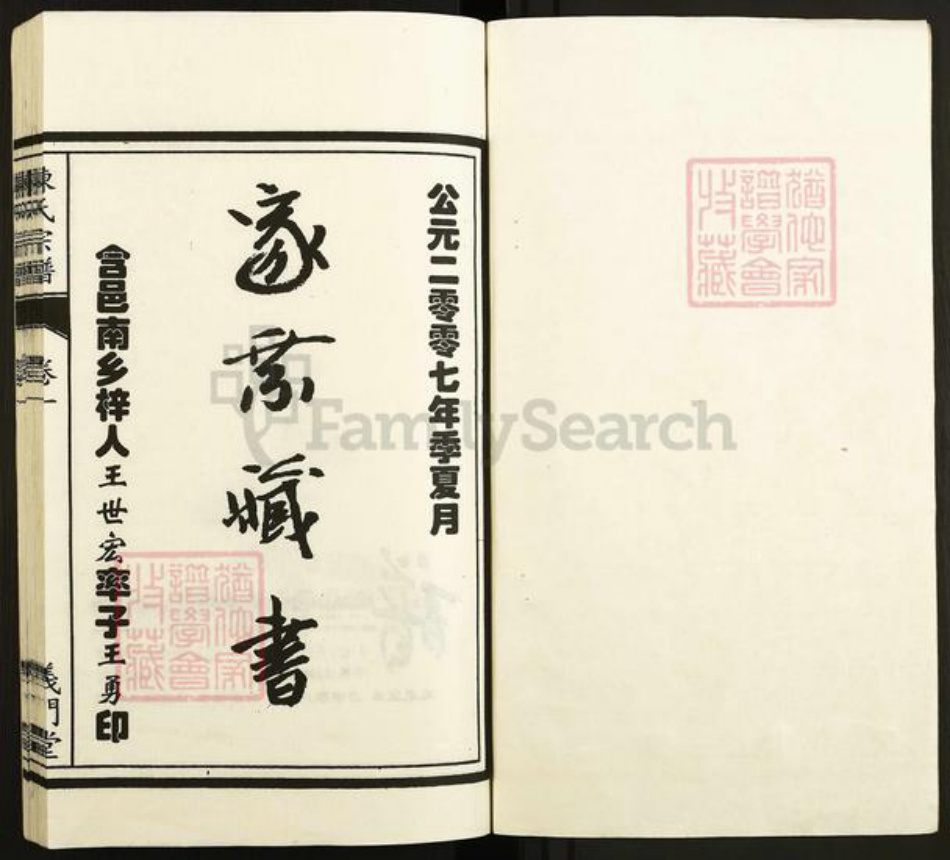 猶他家
譜學會
收藏
公元二零零七年季夏月
家乘藏書
含邑南乡梓人王世宏率子王勇印
陳氏宗譜
卷一
義門堂
猶他家
譜學會
收藏
FamilySearch